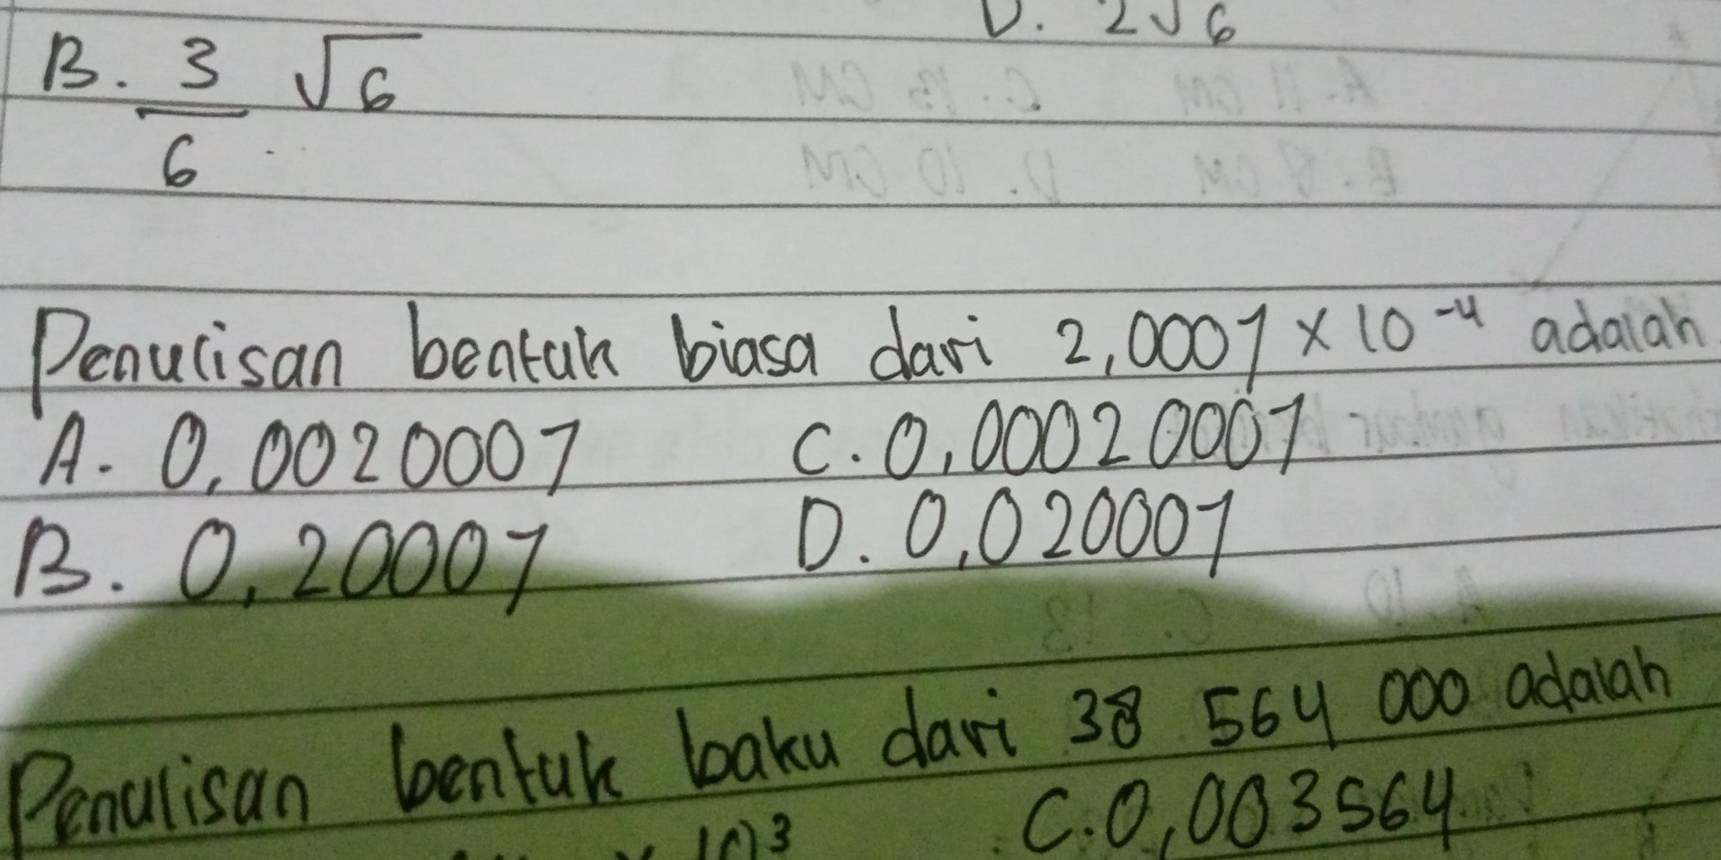 D. 2√6
B. 3/6 √6
Penulisan bentuk biasa dari 2,0007 × 10⁻⁴ adalah
A. 0,0020007 C. 0,00020007
B. 0,20007 D. 0,020007
Penulisan bentuk baku dari 38 564 000 adalah
C. 0,003564
× 10³